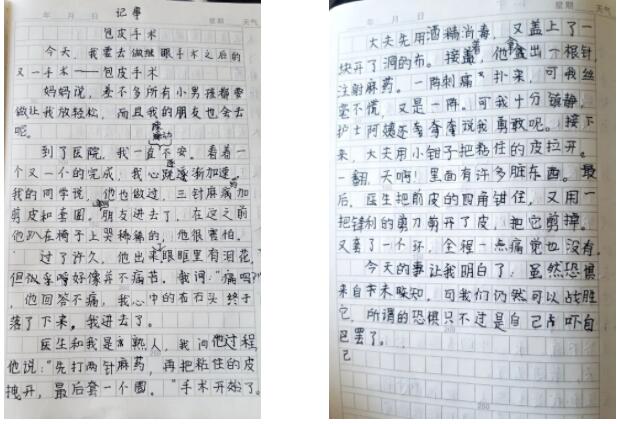 年 月 日 星期 天气
记事
包皮手术
今天，我要去做继眼手术之后的
又一手术——包皮手术
妈妈说，差不多所有小男孩都要
做让我放轻松，而且我的朋友也会去
呢。
到了医院，我一直不安。看着一
个又一个的完成，我心跳逐渐加速。
我的同学说，他也做过，三针麻药加
剪皮和套圈。朋友进去了，在这之前
他趴在椅子上哭稀稀的，他很害怕。
过了许久，他出来眼眶里有泪花，
但似乎好像并不痛苦。我问：“痛吗？”
，他回答不痛，我心中的石头终于
落了下来，我进去了。
医生和我是熟人，我问他过程，
他说：“先打两针麻药，再把粘住的皮
拽开，最后套一个圈。”手术开始了。
年 月 日 星期 天气
大夫先用酒精消毒，又盖上了一
块开了洞的布。接着，他拿出一根针，
注射麻药。一阵刺痛扑来，可我丝
毫不慌，又是一阵。可我十分镇静，
护士阿姨还夸夸我勇敢呢。接下
来，大夫用小钳子把粘住的皮拉开。
一翻，天啊！里面有许多脏东西。最
后，医生把前皮的四角钳住，又用一
把锋利的剪刀剪开了皮，把它剪掉。
又套了一个环，全程一点痛觉也没有。
今天的事让我明白了：虽然恐惧
来自未知，可我们仍然可以战胜
它，所谓的恐惧只不过是自己吓自
己罢了。
己
200